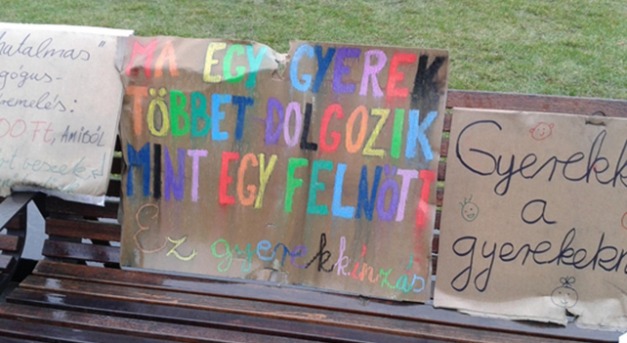 hatalmas"
ógus-
emelés:
00 Ft, AMIBŐL
MA EGY GYEREK
TÖBBET DOLGOZIK
MINT EGY FELNŐTT
Ez gyerekkínzás
Gyerekk
a
gyerekekn